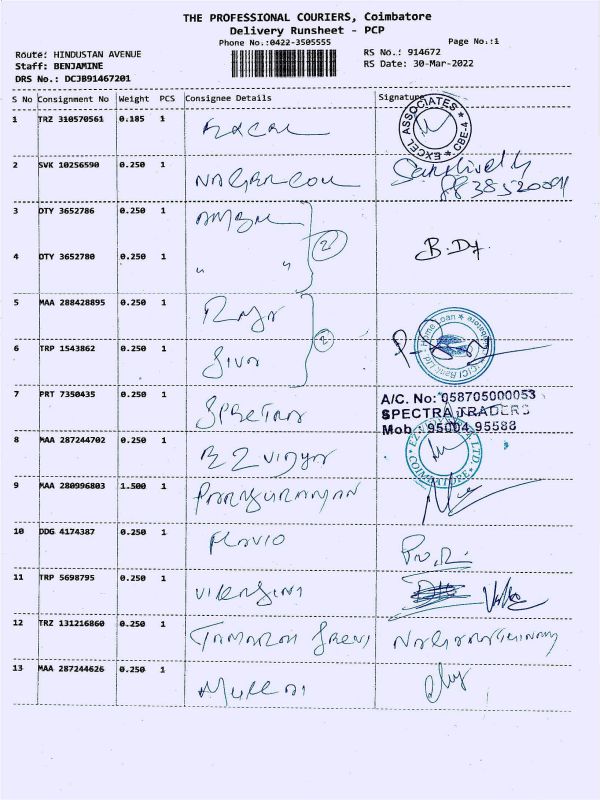 THE PROFESSIONAL COURIERS, Coimbatore
Delivery Runsheet - PCP
Phone No.:0422-3505555
Page No.:1
Route: HINDUSTAN AVENUE
Staff: BENJAMINE
DRS No.: DCJB91467201
RS No.: 914672
RS Date: 30-Mar-2022
S No Consignment No Weight PCS Consignee Details Signature
1 TRZ 310570561 0.185 1
EXCEL ASSOCIATES * CBE-4 *
2 SVK 10256590 0.250 1
3 DTY 3652786 0.250 1
2
4 DTY 3652780 0.250 1 " "
5 MAA 288428895 0.250 1 Raja
2
ICICI Bank Ltd Home Loan
6 TRP 1543862 0.250 1 Siva
7 PRT 7350435 0.250 1
A/C. No: 058705000053
SPECTRA TRADERS
Mob 95004 95588
8 MAA 287244702 0.250 1 EZ Vidya
COIMBATORE
9 MAA 280996803 1.500 1
10 DDG 4174387 0.250 1 FLAVIO
11 TRP 5698795 0.250 1
12 TRZ 131216860 0.250 1
13 MAA 287244626 0.250 1